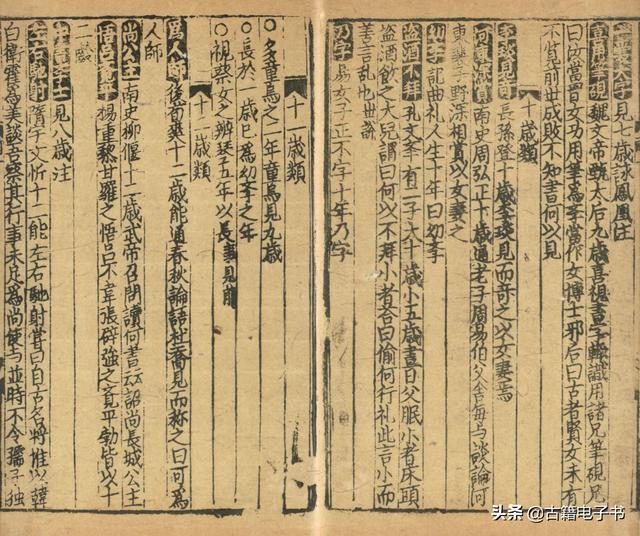 見七歲詠鳳凰注
當用筆硯 魏文帝甄太后九歲喜視書字輒識用諸兄筆硯兄
曰汝當習女功用筆為學當作女博士邪后曰古者賢女未有
不覽前世成敗不知書何以見
十歲類
長孫登十歲李琰見而奇之以女妻焉
何東深賞 南史周弘正十歲通老子周易伯父舍每与談論何
東裴子野深相賞以女妻之
幼學 記曲礼人生十年曰幼學
盜酒不拜 孔文舉有二子大十歲小五歲晝日父眠小者床頭
盜酒飲之大兒謂曰何以不拜小者荅曰偷何行礼此言小而
善言乱也世說
乃字 易女子正不字十年乃字
十一歲類
○多童烏之一年童烏見九歲
○長於一歲已為幼學之年
○視蔡女之辨琴五年以長事見前
十二歲類
為人師 後荀爽十二歲能通春秋論語杜喬見而称之曰可為
人師
尚公主 南史柳偃十二歲武帝召問讀何書云詔尚長城公主
楊重黎甘羅之悟呂不韋張辟強之覔平勃皆以十
二齡
見八歲注
左右馳射 隋宇文忻十二能左右馳射嘗曰自古名將惟以韓
白衛霍為美談吾察其行事未足為尚使与並時不令孺子独
头条 @古籍电子书